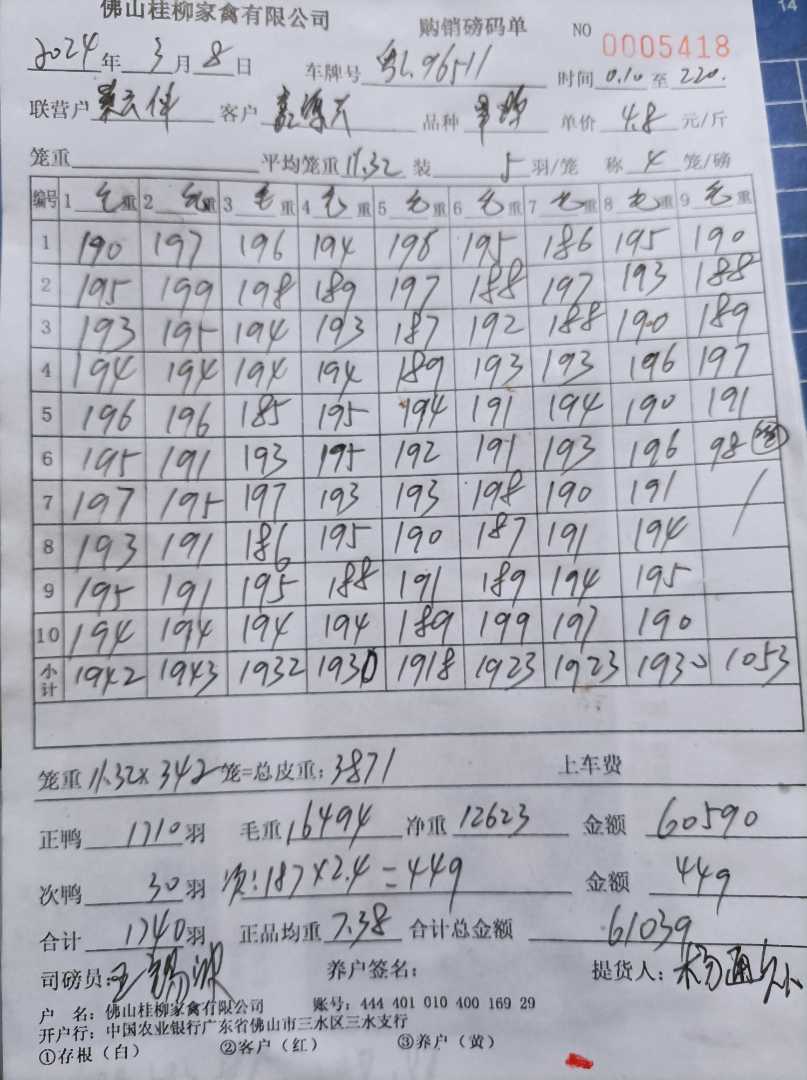 佛山桂柳家禽有限公司 购销磅码单 NO 0005418
2024年3月8日 车牌号 粤L96511 时间 0.10 至 220.
联营户 客户 品种 单价 4.8 元/斤
笼重 平均笼重 11.32 装 5 羽/笼 称 4 笼/磅
编号 1 毛重 2 毛重 3 毛重 4 毛重 5 毛重 6 毛重 7 毛重 8 毛重 9 毛重
1 190 197 196 194 198 195 186 195 190
2 195 199 198 189 197 188 197 193 188
3 193 195 194 193 187 192 188 190 189
4 194 194 194 194 189 193 193 196 197
5 196 196 185 195 194 191 194 190 191
6 195 191 193 195 192 191 193 196 98
7 197 195 197 193 193 198 190 191
8 193 191 186 195 190 187 191 194
9 195 191 195 188 191 189 194 195
10 194 194 194 194 189 199 197 190
小计 1942 1943 1932 1930 1918 1923 1923 1930 1053
笼重 11.32×342 笼=总皮重: 3871 上车费
正鸭 1710 羽 毛重 16494 净重 12623 金额 60590
次鸭 30 羽 次:187×2.4=449 金额 449
合计 1740 羽 正品均重 7.38 合计总金额 61039
司磅员: 王锡波 养户签名: 提货人:
户 名: 佛山桂柳家禽有限公司 账号: 444 401 010 400 169 29
开户行: 中国农业银行广东省佛山市三水区三水支行
①存根(白) ②客户(红) ③养户(黄)
14